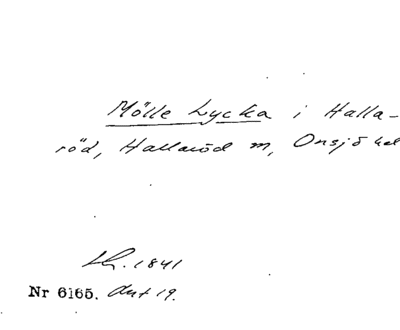 Mölle Lycka i Halla-
röd, Hallaröd m, Onsjö
1841
Nr 6165. Akt 19.